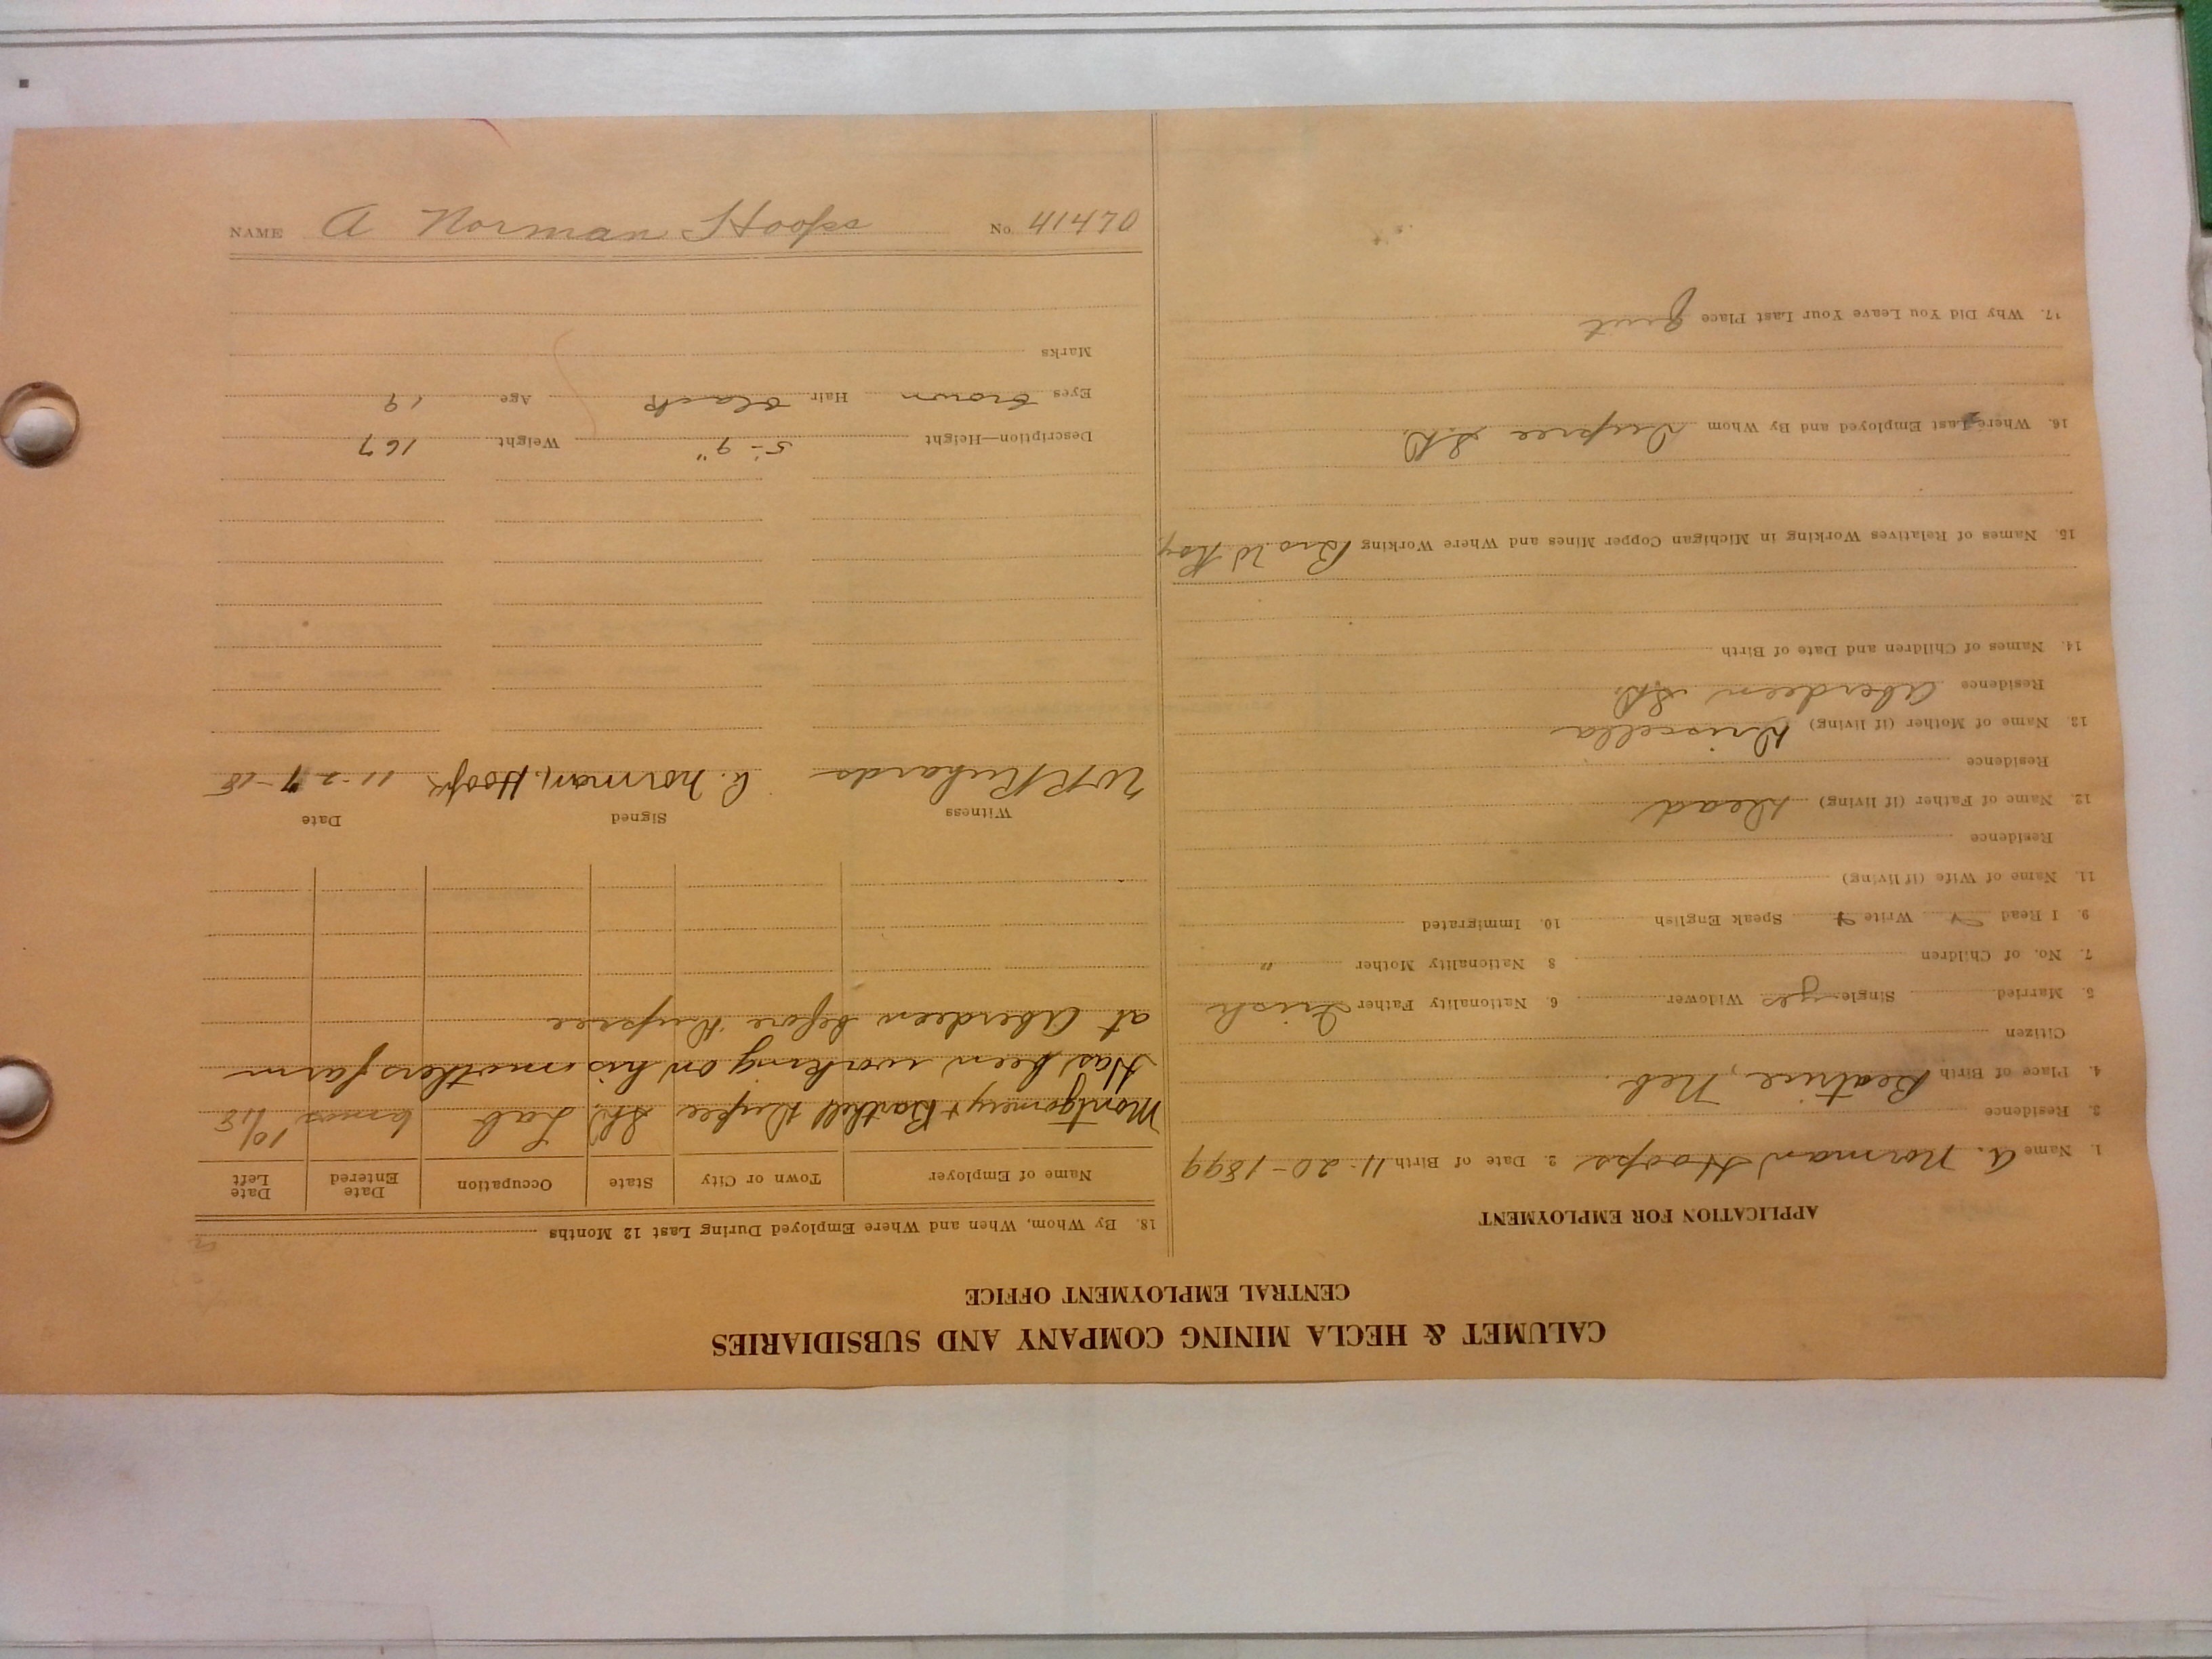 CALUMET & HECLA MINING COMPANY AND SUBSIDIARIES
CENTRAL EMPLOYMENT OFFICE
APPLICATION FOR EMPLOYMENT
1. Name A. Norman Hoops 2. Date of Birth 11-20-1899
3. Residence
4. Place of Birth Beatrice, Neb.
Citizen
5. Married Single yes Widower 6. Nationality Father Irish
7. No. of Children 8 Nationality Mother "
9. I Read Write Speak English 10. Immigrated
11. Name of Wife (if living)
Residence
12. Name of Father (if living) Dead
Residence
13. Name of Mother (if living) Priscella
Residence Aberdeen S.D.
14. Names of Children and Date of Birth
15. Names of Relatives Working in Michigan Copper Mines and Where Working Bro
16. Where Last Employed and By Whom Dupree S.D.
17. Why Did You Leave Your Last Place Quit
18. By Whom, When and Where Employed During Last 12 Months
Name of Employer Town or City State Occupation Date Entered Date Left
Montgomery & Barthell Dupree S.D. Lab 10/18
Has been working on his mothers farm
at Aberdeen before Dupree
Witness Signed Date
W R Richards A. Norman, Hoops 11-27-18
Description—Height 5-9" Weight 167
Eyes Brown Hair Black Age 19
Marks
NAME A Norman Hoops No. 41470